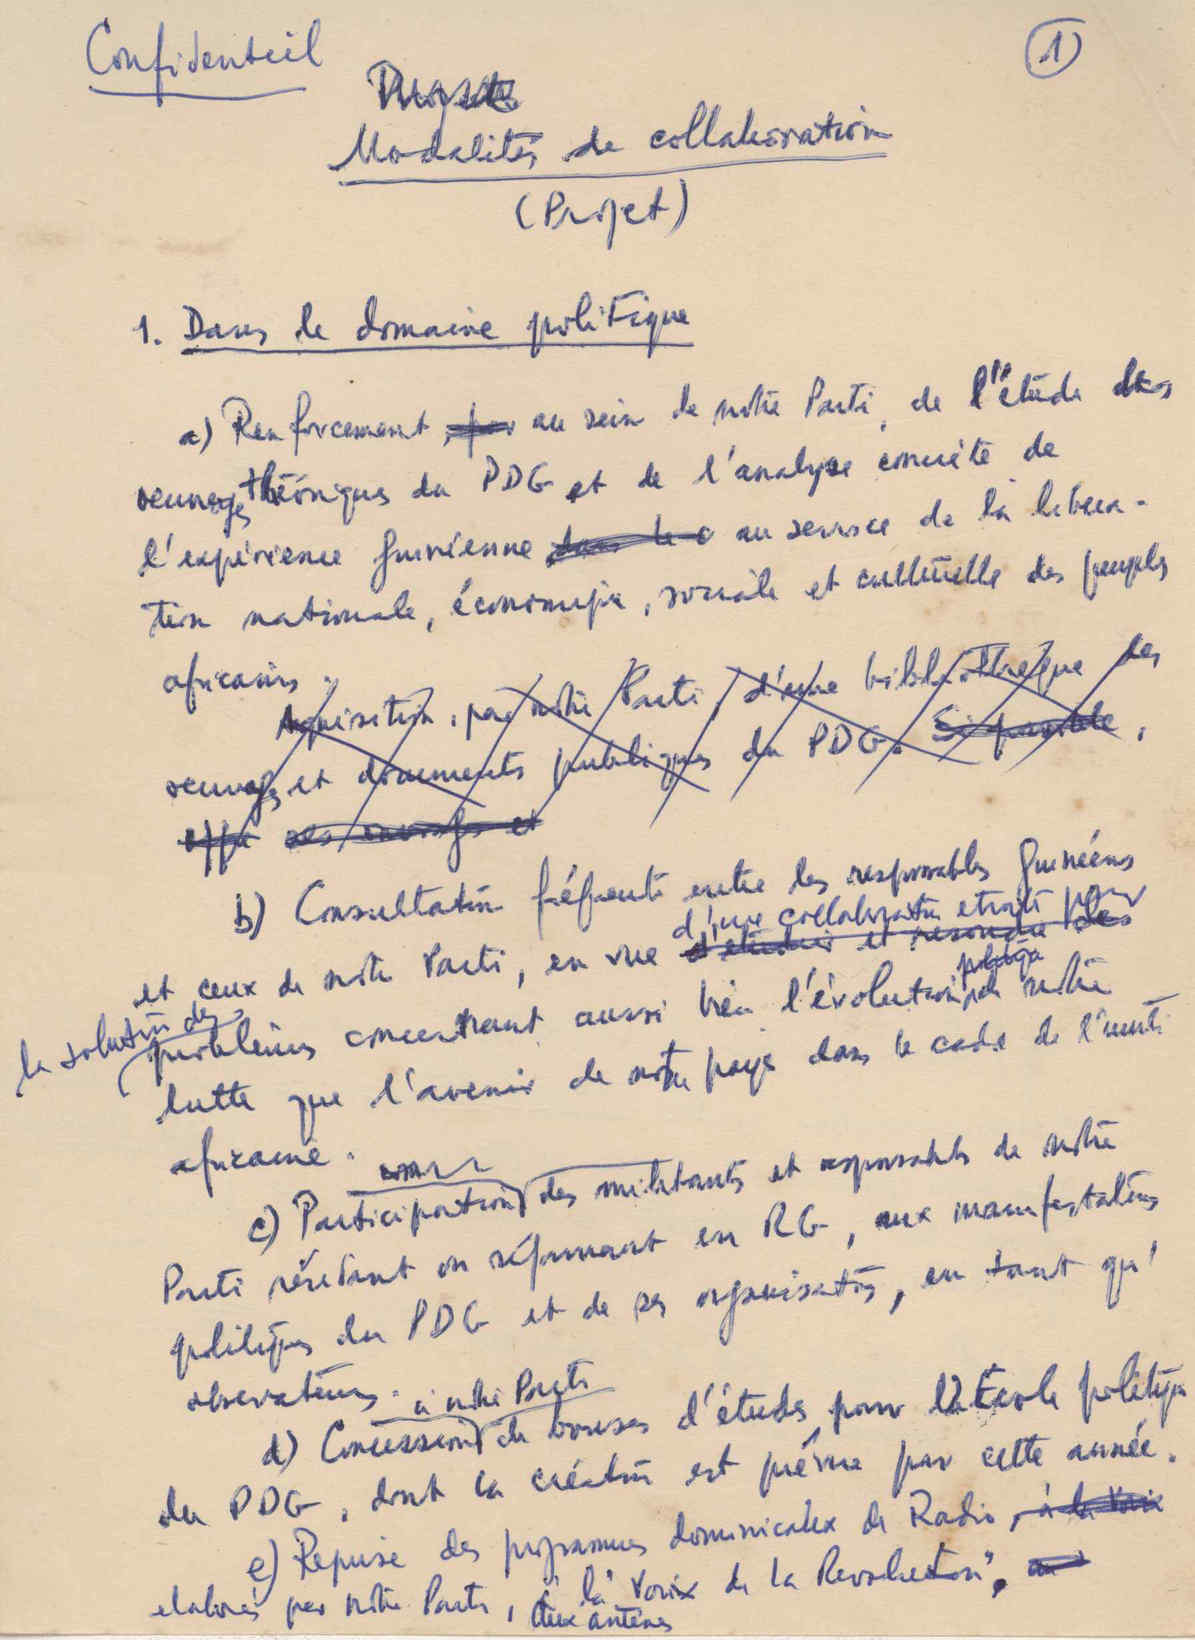 Confidenteil
1
Modalités de collaboration
(Projet)
1. Dans le domaine politique
a) Renforcement, au sein de notre Parti, de l'étude des
oeuvrages théoriques du PDG et de l'analyse concrète de
l'expérience guinéenne au service de la libéra-
tion nationale, économique, sociale et culturelle des peuples
africains.
Aquisition, par notre Parti, d'une bibliothèque des
oeuvrages et documents publiques du PDG. Si possible,
ses ouvrages et
b) Consultation fréquente entre les responsables guinéens
d'une collaboration etroite pour
et ceux de notre Parti, en vue d'étudier et resoudre des
la solution des
problèmes concernant aussi bien l'évolution de notre
lutte que l'avenir de notre pays dans le cadre de l'unité
africaine.
c) Participation des militants et responsables de notre
Parti résidant ou séjournant en RG, aux manifestations
politiques du PDG et de ses organisations, en tant qu'
observateurs.
à notre Parti
d) Concession de bourses d'études pour l'Ecole politique
du PDG, dont la création est prévue par cette année.
e) Reprise des programmes dominicales de Radio, à la Voix
elaborés par notre Parti, à la "Voix de la Revolution",
aux antènes